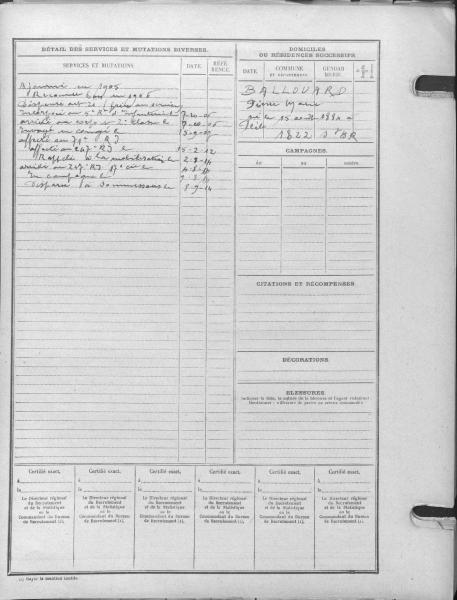 DÉTAIL DES SERVICES ET MUTATIONS DIVERSES.
SERVICES ET MUTATIONS
DATE.
RÉFÉRENCE.
Ajourné en 1905
Reconnu bon en 1906
Dispensé art 21
7-10-06
arrivé au corps 2e classe le
7-10-06
envoyé en congé le
affecté au 79e R I
affecté au 247e R I le
15-2-12
Rappelé à la mobilisation le
2-8-14
arrivé au 247e R I
4-8-14
en campagne le
Disparu à Sommesous le
8-9-14
DOMICILES
OU RÉSIDENCES SUCCESSIFS
DATE
COMMUNE
ET DÉPARTEMENT.
GENDARMERIE.
BALLOUARD
Pierre Marie
né le 15 août 188
1822 St BR
CAMPAGNES.
du
au
contre
CITATIONS ET RÉCOMPENSES
DÉCORATIONS
BLESSURES
Certifié exact,
Certifié exact,
Certifié exact,
Certifié exact,
Certifié exact,
Certifié exact,
à
à
à
à
à
à
le
le
le
le
le
le
Le Directeur régional
du Recrutement
et de la Statistique
ou le
Commandant du Bureau
de Recrutement (1).
Le Directeur régional
du Recrutement
et de la Statistique
ou le
Commandant du Bureau
de Recrutement (1).
Le Directeur régional
du Recrutement
et de la Statistique
ou le
Commandant du Bureau
de Recrutement (1).
Le Directeur régional
du Recrutement
et de la Statistique
ou le
Commandant du Bureau
de Recrutement (1).
Le Directeur régional
du Recrutement
et de la Statistique
ou le
Commandant du Bureau
de Recrutement (1).
Le Directeur régional
du Recrutement
et de la Statistique
ou le
Commandant du Bureau
de Recrutement (1).
(1) Rayer la mention inutile.